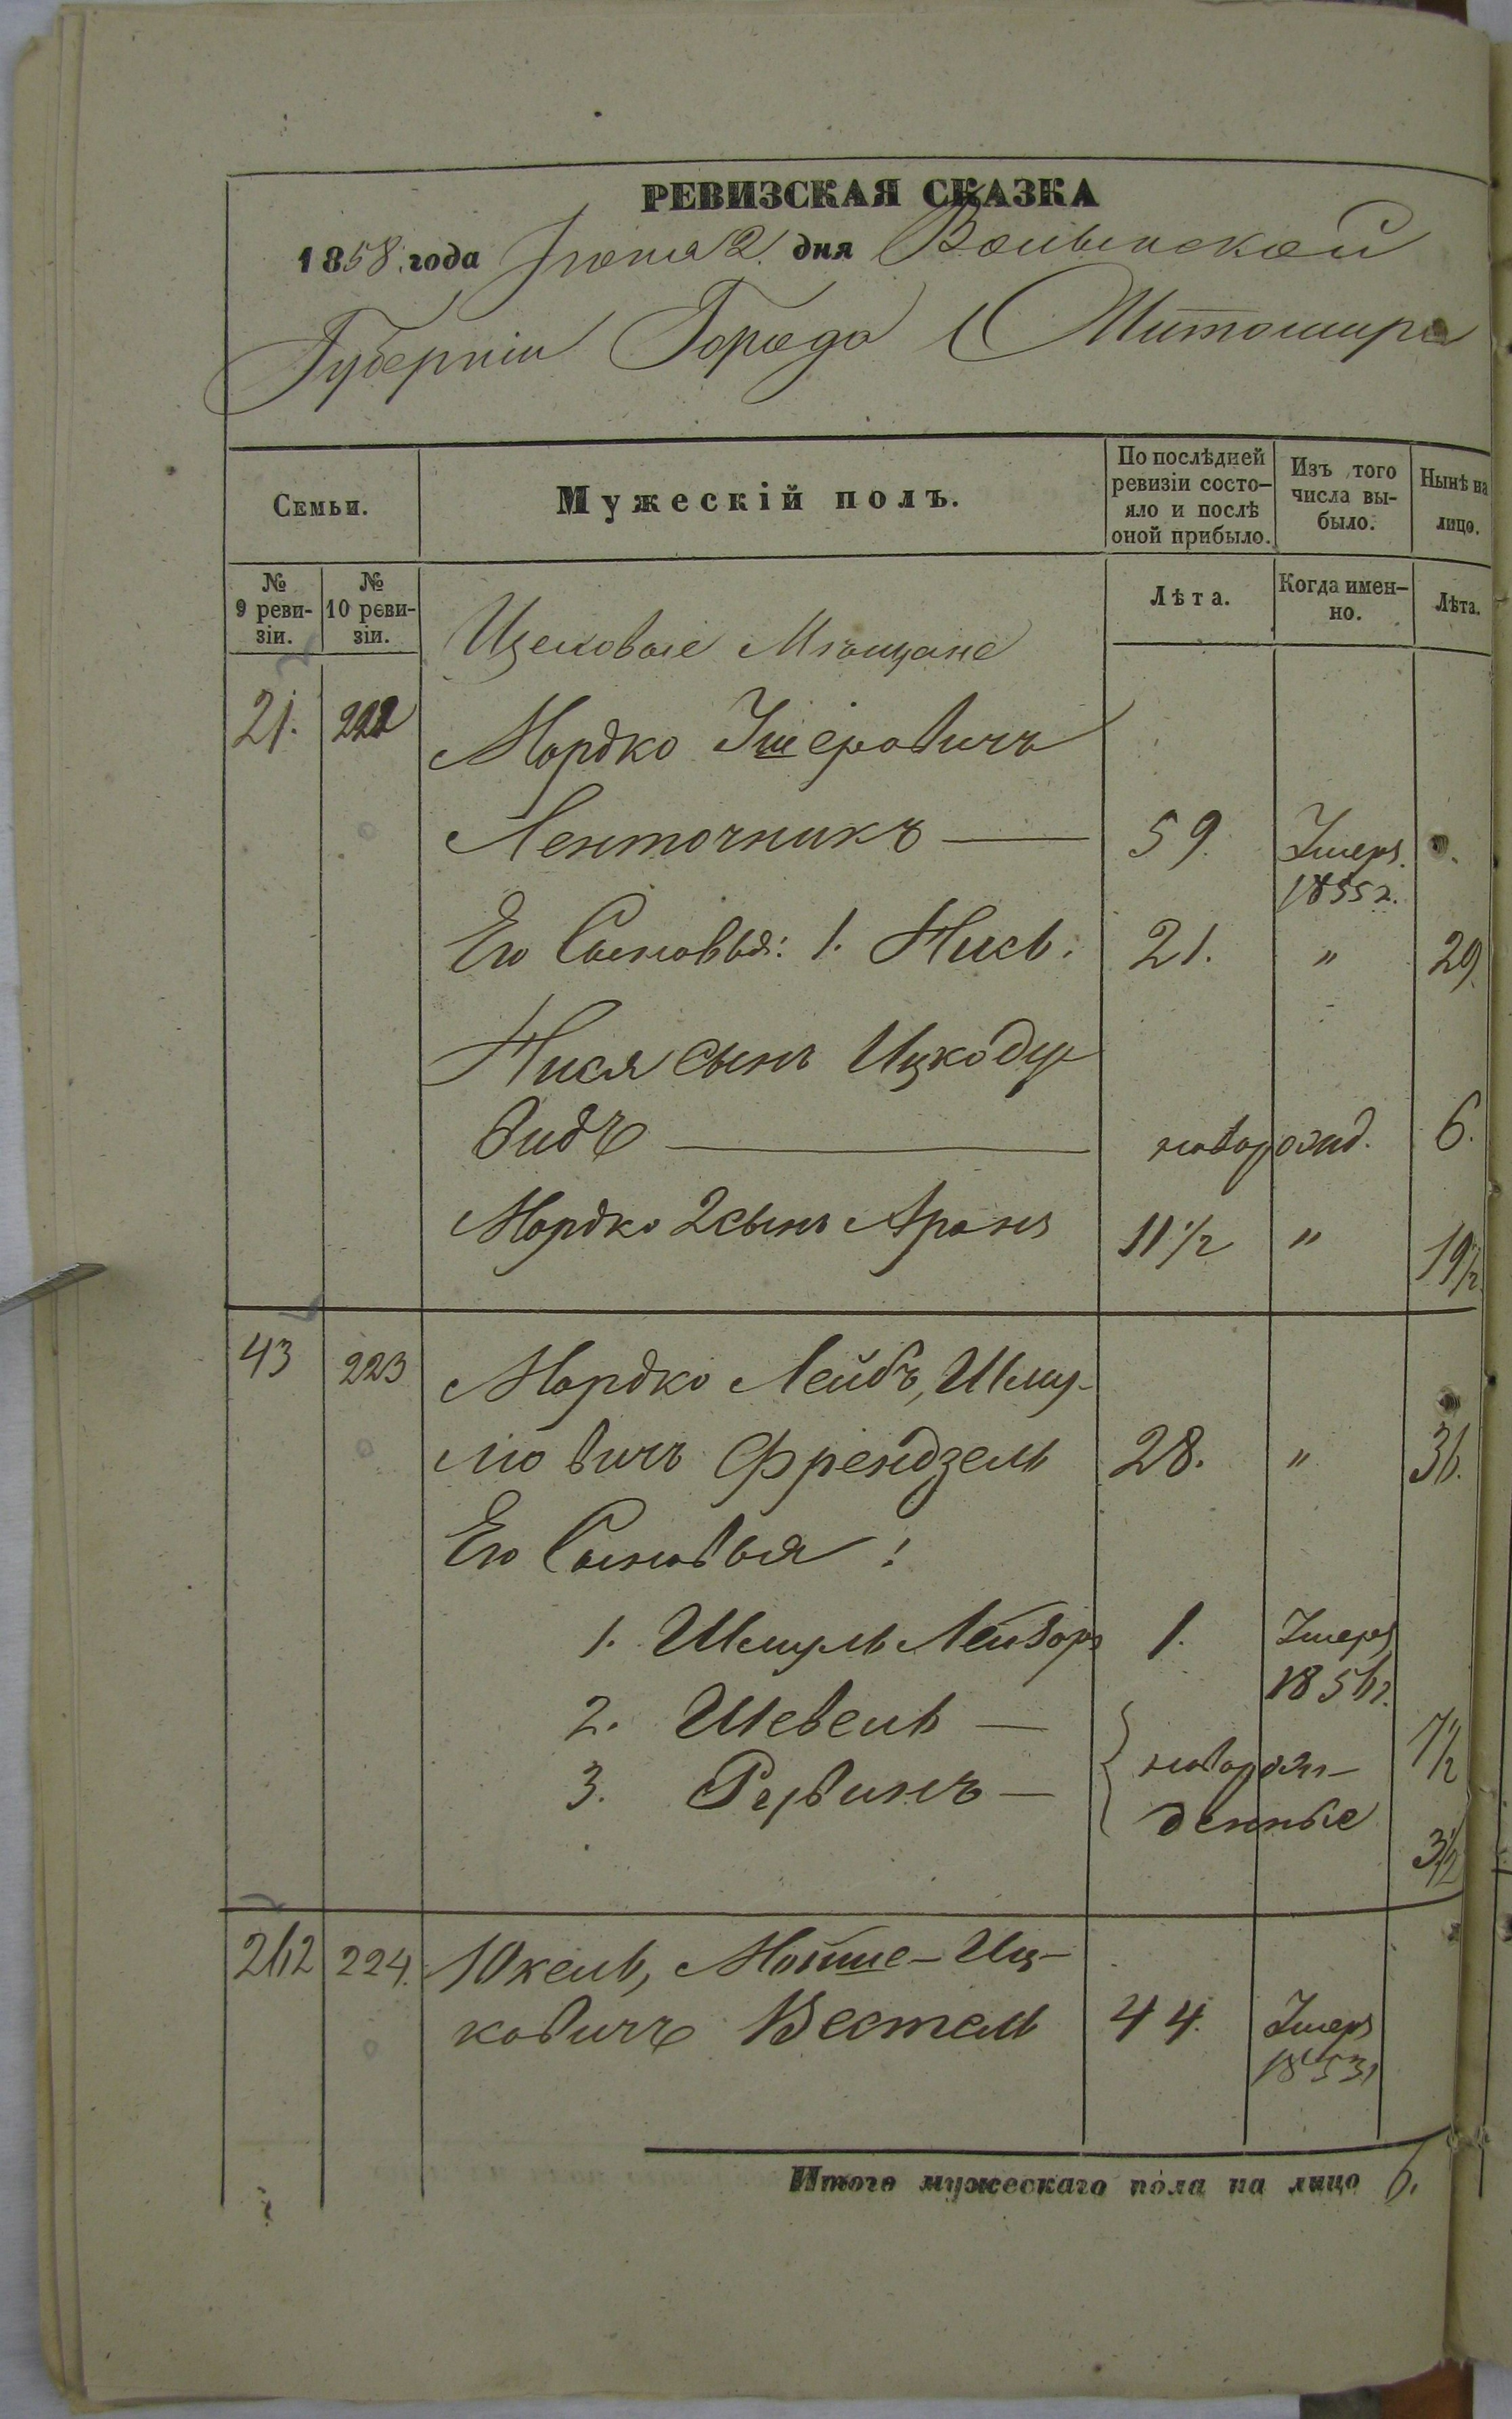 РЕВИЗСКАЯ СКАЗКА
1858. года Іюня 2. дня Волынской
Губерніи Города Житомира
Семьи.
Мужескій полъ.
По послѣдней ревизіи состо-
яло и послѣ оной прибыло.
Изъ того числа вы-
было.
Нынѣ на лицо.
№ 9 реви-
зіи.
№ 10 реви-
зіи.
Лѣта.
Когда имен-
но.
Лѣта.
Цеховые Мѣщане
21. 222 Мордко Ушеровичъ
Ленточникъ — 59. Умеръ
1855 г.
Его Сыновья: 1. Нись. 21. " 29.
Нися сынъ Ицко Ду
видъ — новорожд. 6.
Мордко 2 сынъ Аронъ 11 1/2 " 19 1/2
43 223 Мордко Лейбъ, Шму-
лювичъ Френдзель 28. " 36.
Его Сыновья:
1. Шмуль Лейзоръ 1. Умеръ
1856 г.
2. Шевель — 7 1/2
3. Рувинъ — новорож-
денные 3 1/2
262 224. Юкель, Мошие-Иц-
ковичъ Вестель 44. Умеръ
1853 г.
Итого мужескаго пола на лицо 6.